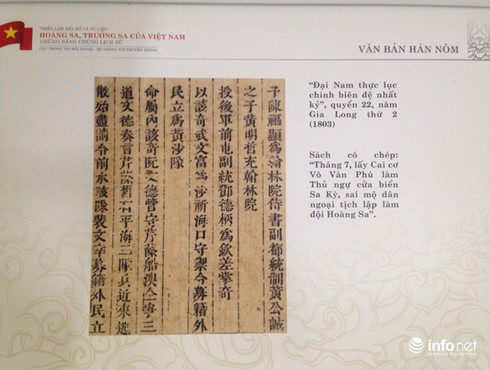 TRIỂN LÃM BẢN ĐỒ VÀ TƯ LIỆU
HOÀNG SA, TRƯỜNG SA CỦA VIỆT NAM
NHỮNG BẰNG CHỨNG LỊCH SỬ
VĂN BẢN HÁN NÔM
子陳福顯為翰林院侍書副都統制黃公誠
之子黃明哲充翰林院
授後軍前屯副統鄧德柄為欽差掌奇
以該奇武文富為沙祈海口守禦令募籍外
民立為黃沙隊
命屬內該奇阮文德管守芹蒢船澳
道文德奏言芹蒢舊有平海三隊兵近來逃
散殆盡請令前水該隊裴文辛募籍外民立
“Đại Nam thực lục
chính biên đệ nhất
kỷ”, quyển 22, năm
Gia Long thứ 2
(1803)
Sách có chép:
“Tháng 7, lấy Cai cơ
Võ Văn Phú làm
Thủ ngự cửa biển
Sa Kỳ, sai mộ dân
ngoại tịch lập làm
đội Hoàng Sa”.
infonet